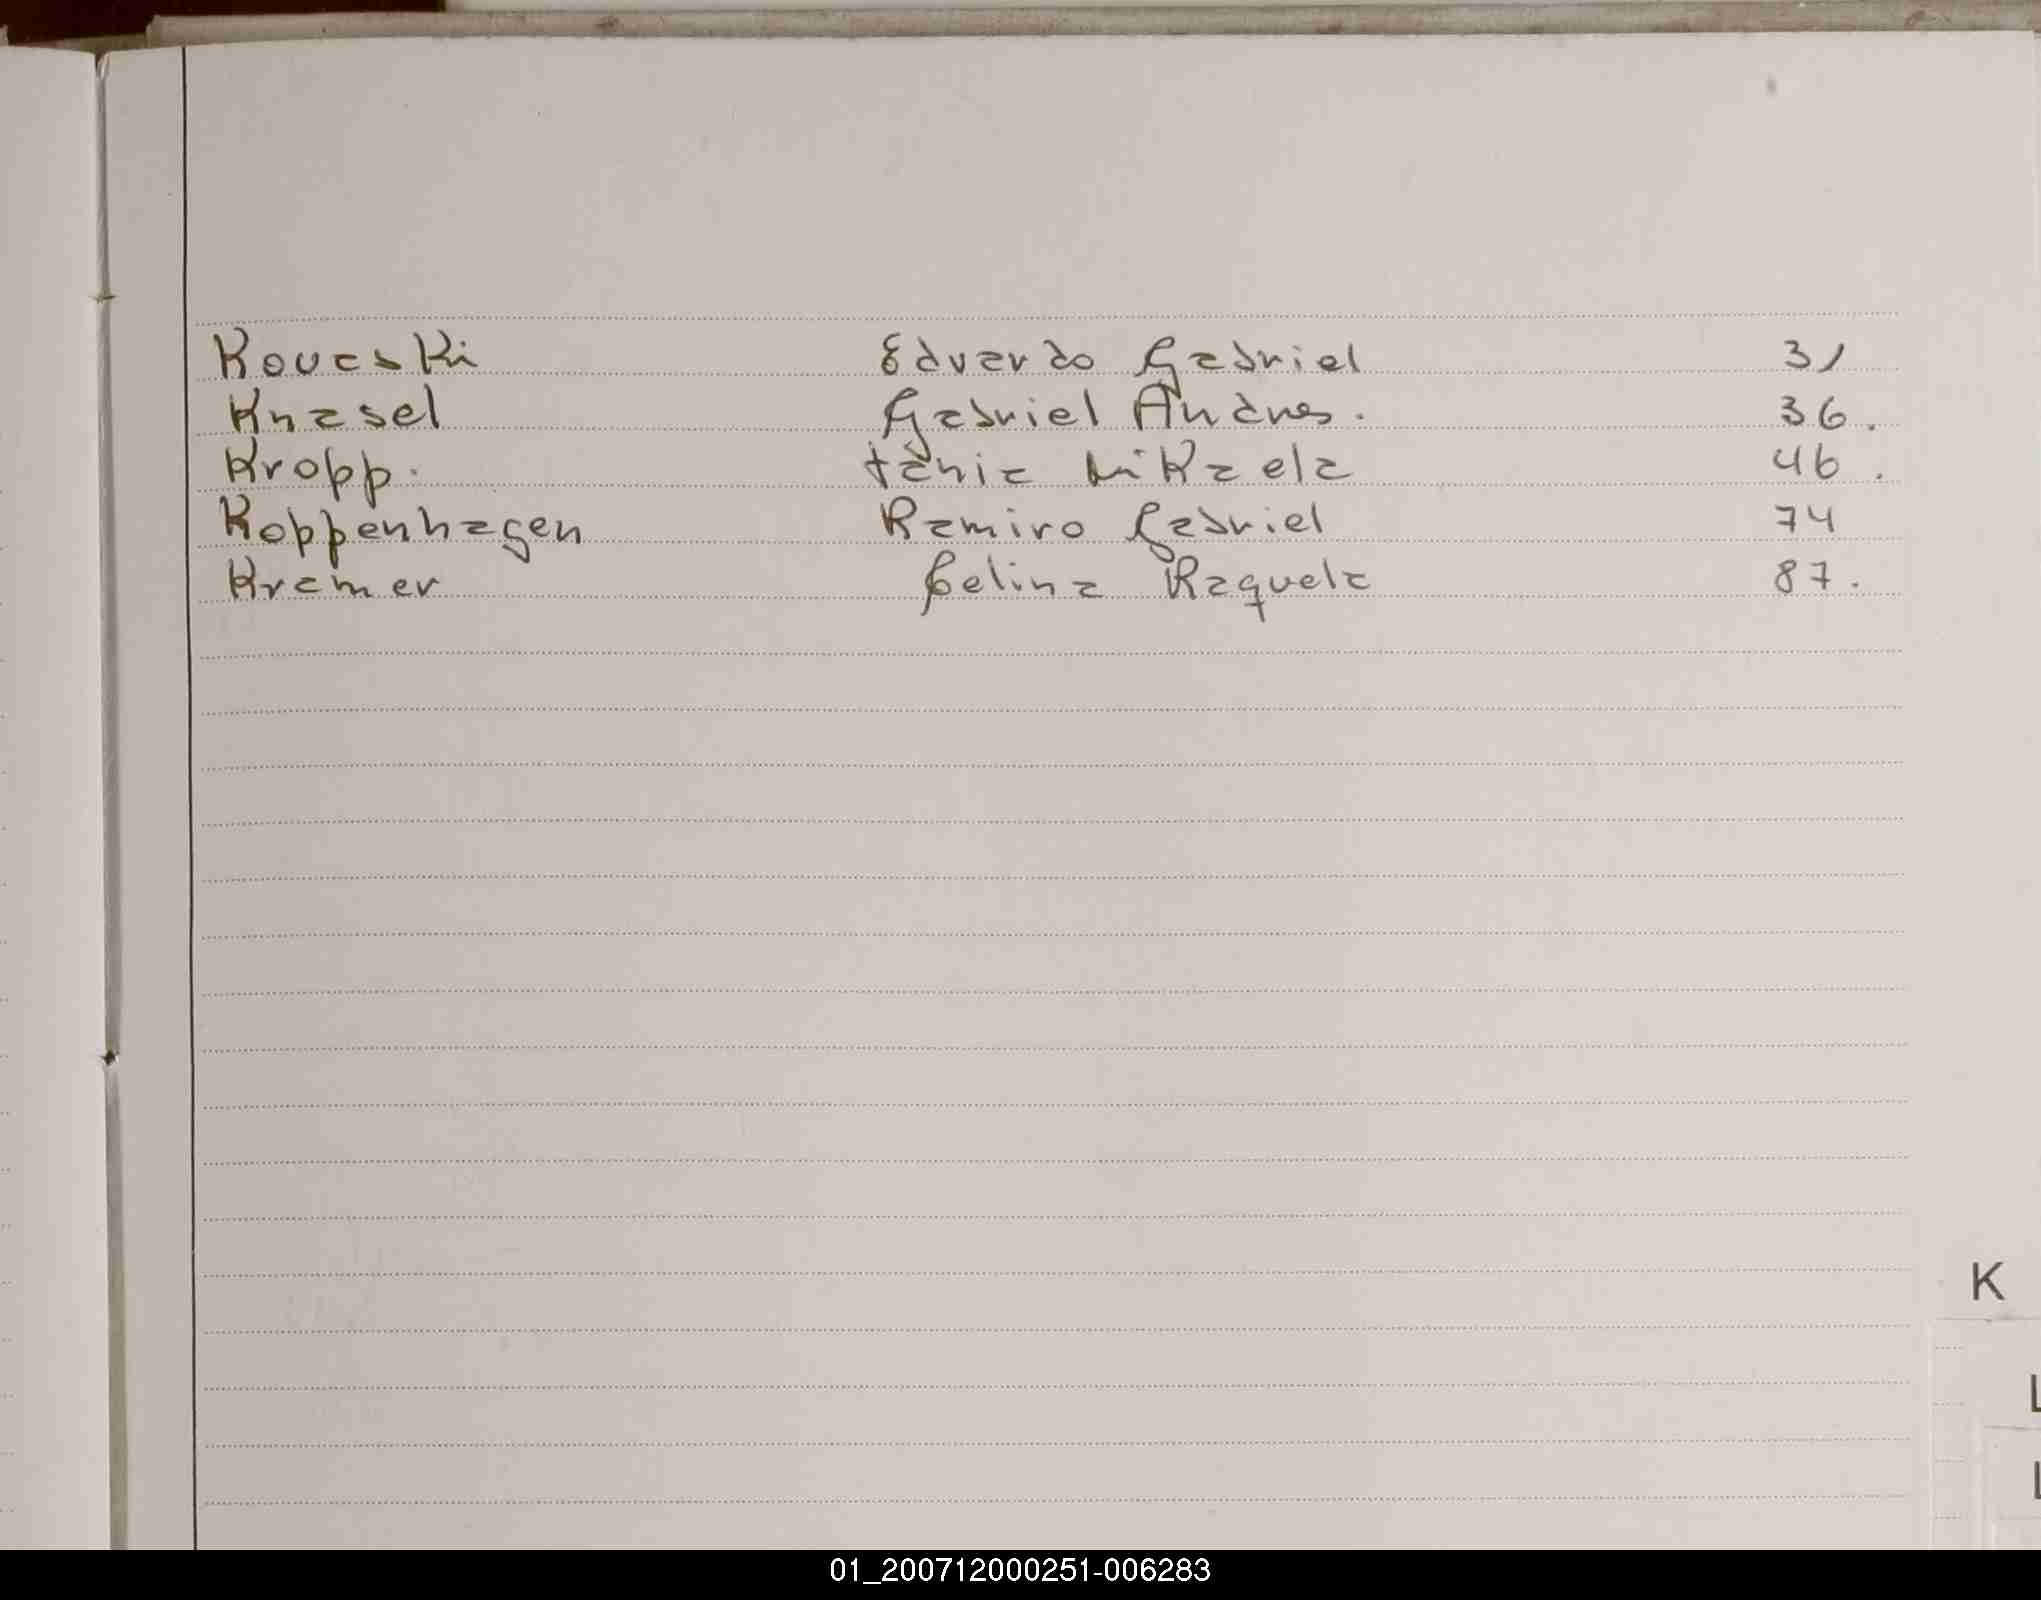 Kovaski Eduardo Gabriel 31
Knasel Gabriel Andres. 36.
Kropp. tania Mikaela 46.
Koppenhagen Ramiro Gabriel 74
Kramer Celina Raquela 87.
K
L
L
01_200712000251-006283